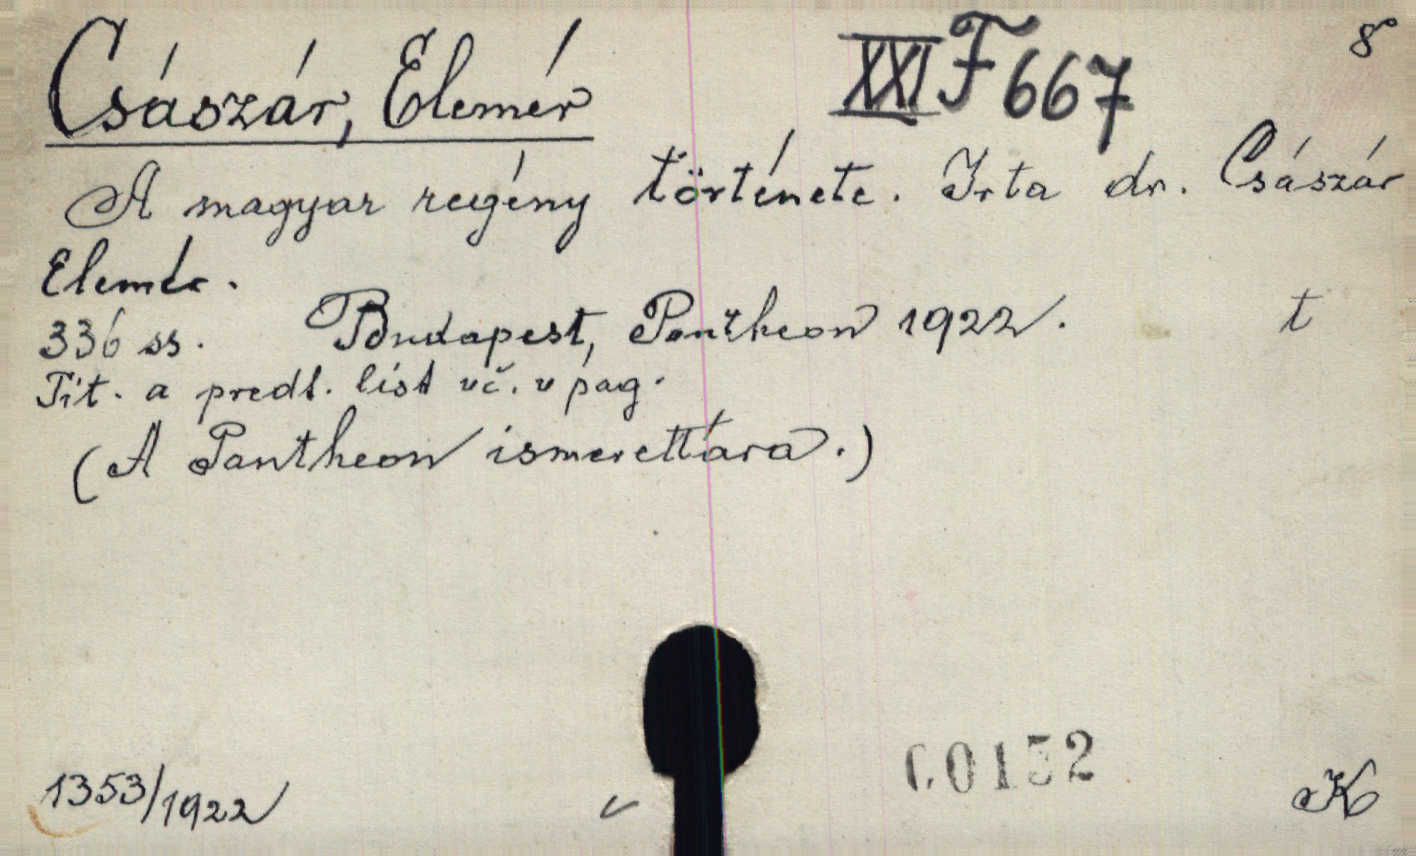 Császár, Elemér XXI F 667 8°
A magyar regény története. Irta dr. Császár
Elemér.
336 ss. Budapest, Pantheon 1922. t
Tit. a predl. list vč. v pag.
(A Pantheon ismerettára.)
1353/1922 K